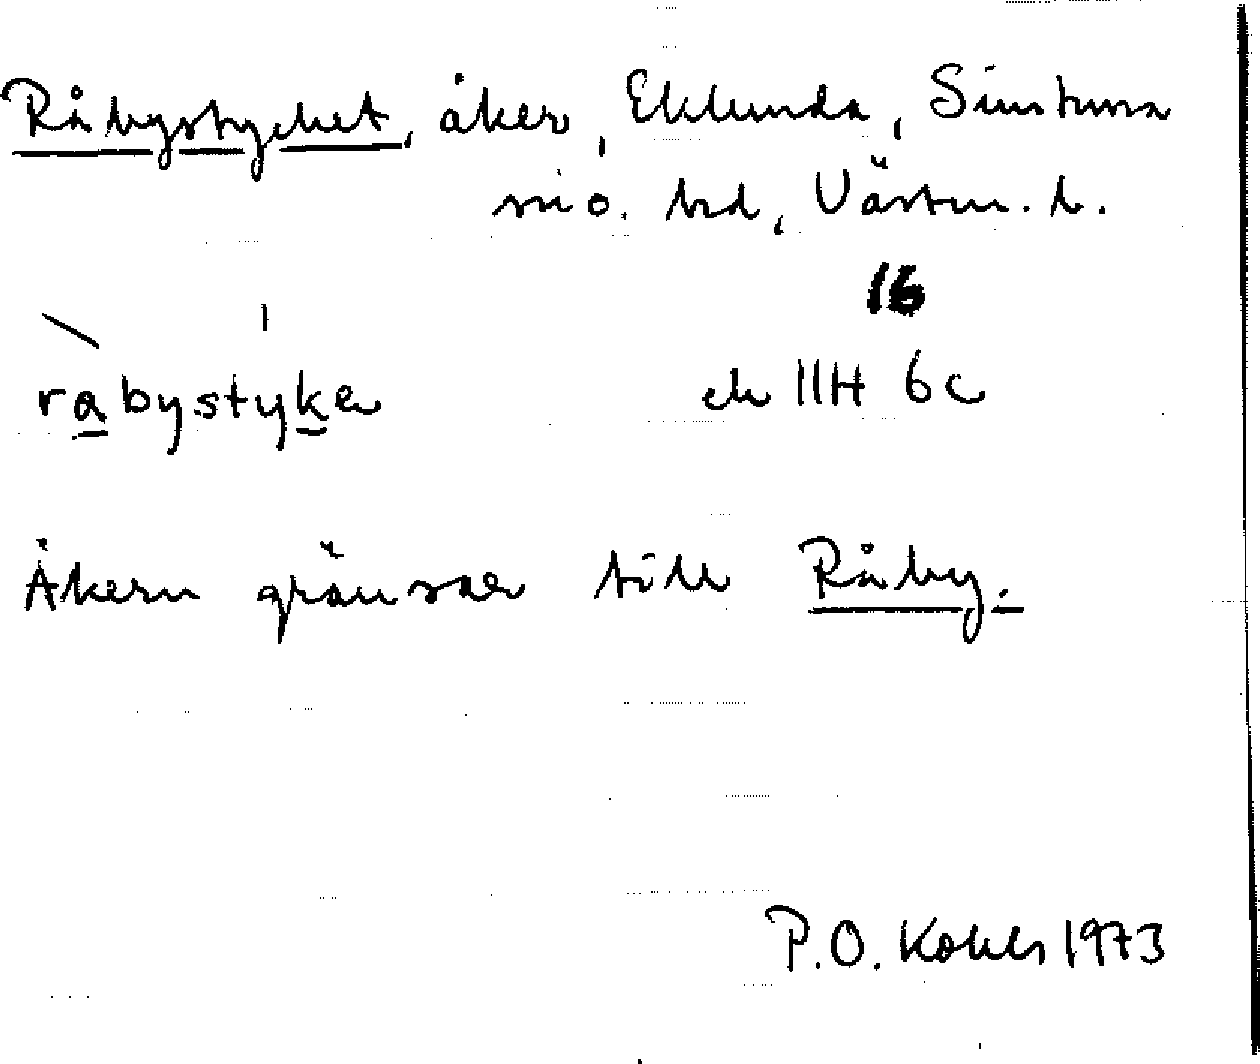 Råbystycket, åker, Eklunda, Simtuna
sn o. hd, Västm. l.
16
råbystyke
ek 11H 6c
Åkern gränsar till Råby.
P.O. 1973